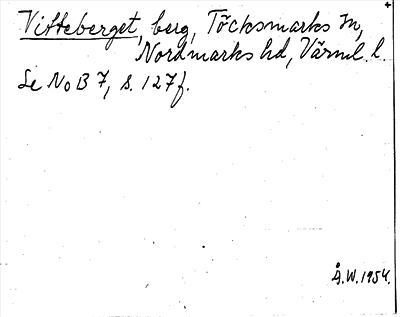 Vitteberget, berg, Töcksmarks sn,
Nordmarks hd, Värml. l.
Se NoB 7, s. 127f.
Å.W. 1954.